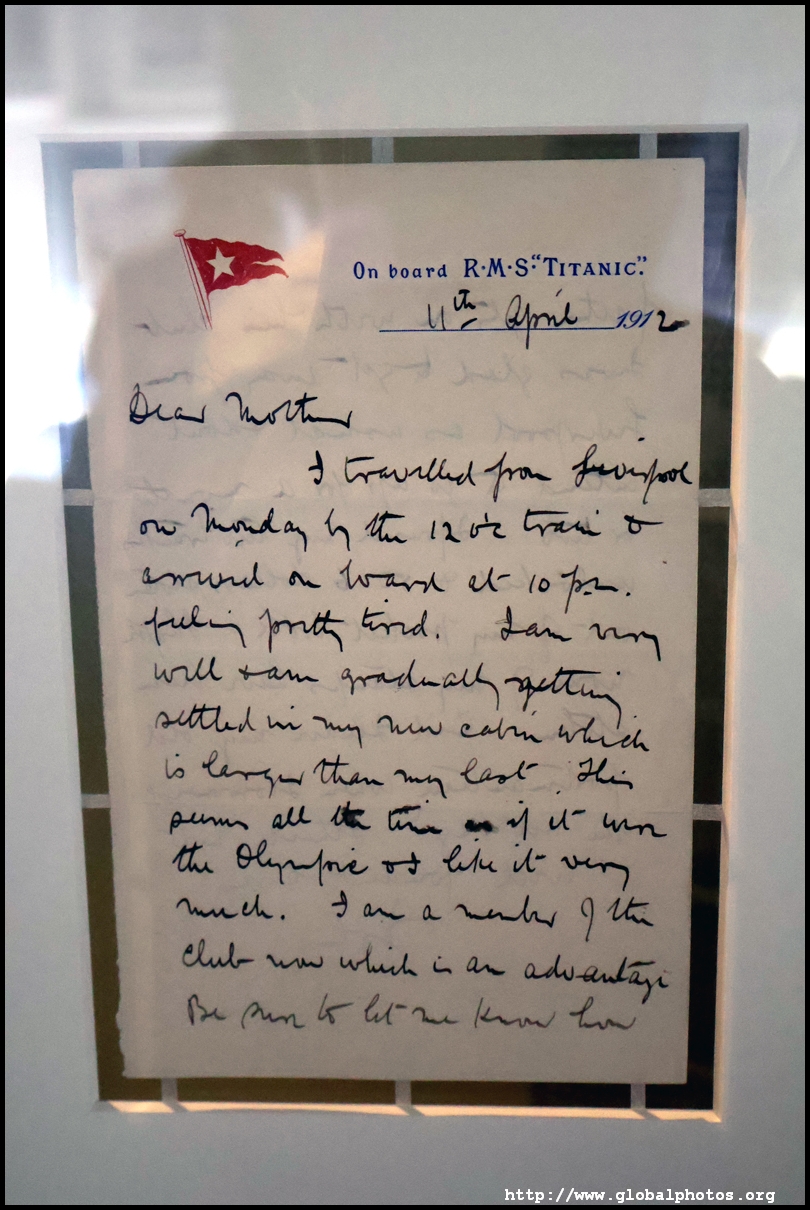 On board R·M·S·"TITANIC".
11th April 1912
Dear Mother
I travelled from Liverpool
on Monday by the 12 o'c train &
arrived on board at 10 p.m.
feeling pretty tired. I am very
well & am gradually getting
settled in my new cabin which
is larger than my last. This
seems all the time as if it were
the Olympic & I like it very
much. I am a member of the
club now which is an advantage
Be sure to let me know how
http://www.globalphotos.org